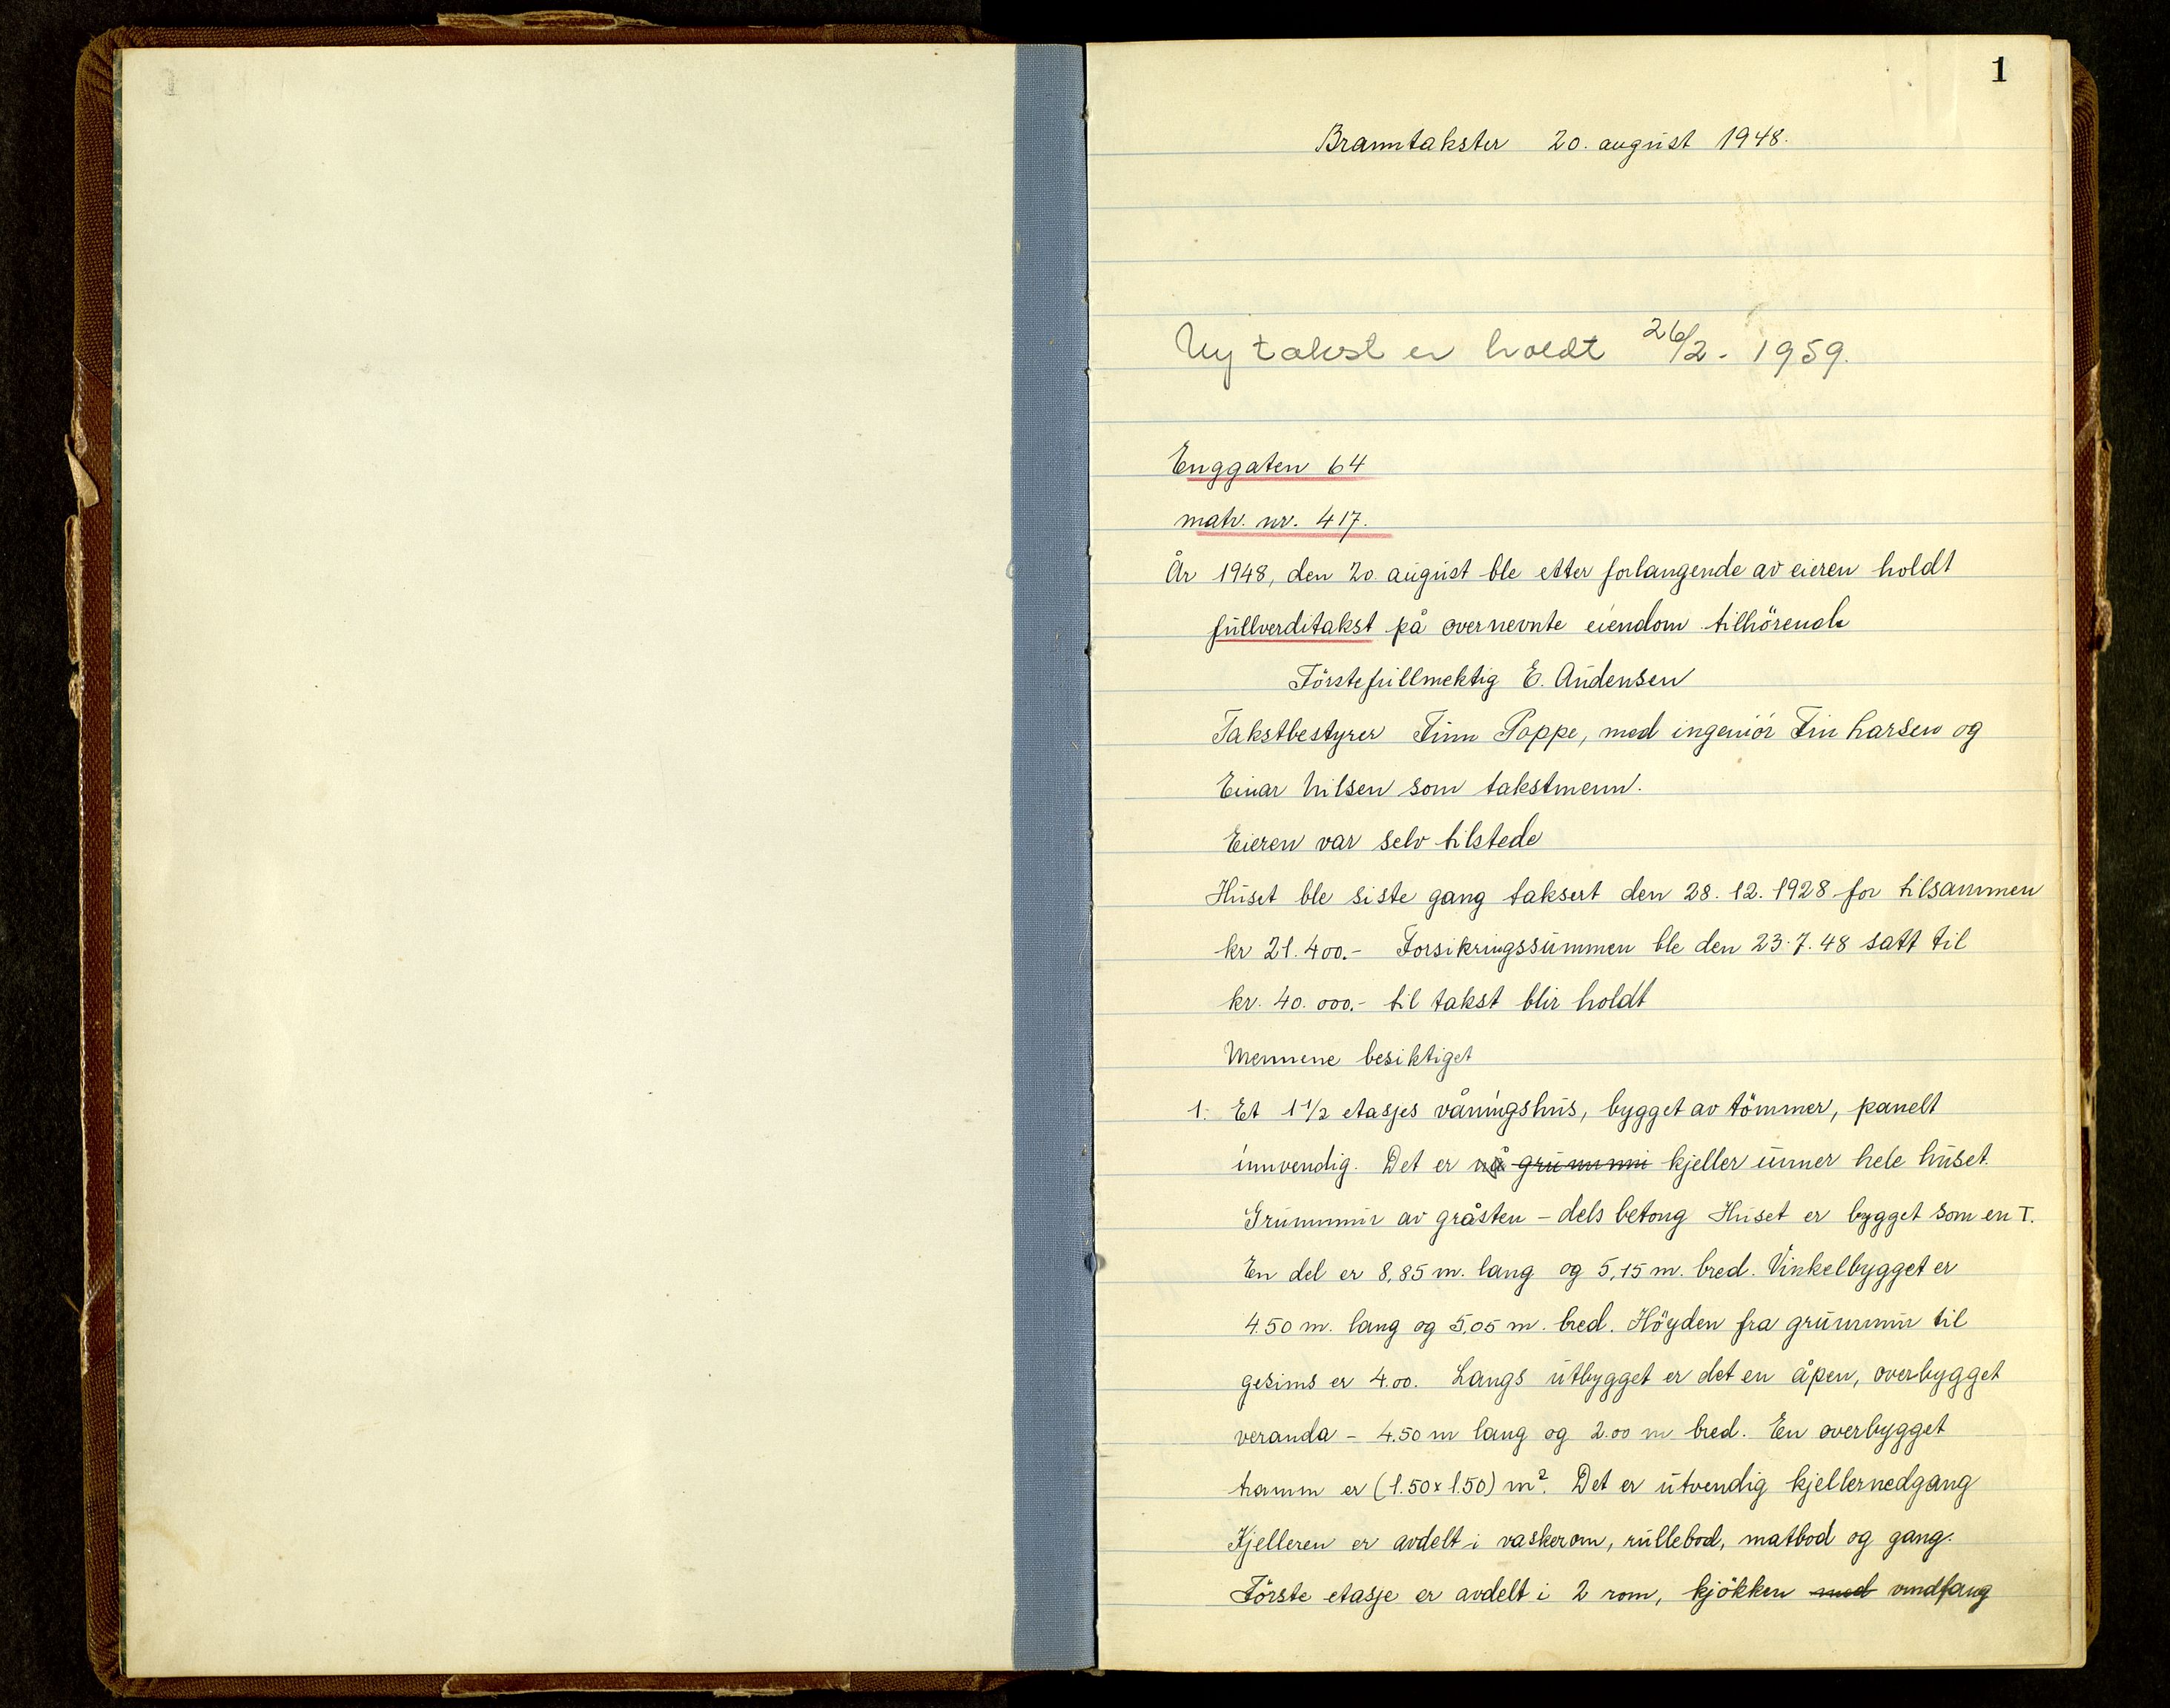 1
Branntakster 20. august 1948.
Ny takst er holdt 26/2 - 1959.
Enggaten 64
matr. nr. 417.
År 1948, den 20. august ble etter forlangende av eieren holdt
fullverditakst på overnevnte eiendom tilhörende
Förstefullmektig E. Andensen
Takstbestyrer Finn Poppe, med ingeniör Finn Larsen og
Einar Nilsen som takstmenn.
Eieren var selv tilstede
Huset ble siste gang taksert den 28.12.1928 for tilsammen
kr 21.400.- Forsikringssummen ble den 23.7.48 satt til
kr. 40.000.- til takst blir holdt
Mennene besiktiget
1. Et 1 1/2 etasjes våningshus, bygget av tömmer, panelt
innvendig. Det er kjeller unner hele huset.
Grunnmur av gråsten - dels betong Huset er bygget som en T.
En del er 8,85 m. lang og 5,15 m. bred. Vinkelbygget er
4.50 m. lang og 5,05 m. bred. Höyden fra grunnmur til
gesims er 4.00. Langs utbygget er det en åpen, overbygget
veranda - 4.50 m lang og 2.00 m bred. En overbygget
tramm er (1.50 x 1.50) m². Det er utvendig kjellernedgang
Kjelleren er avdelt i vaskerom, rullebod, matbod og gang.
Förste etasje er avdelt i 2 rom, kjökken med vindfang